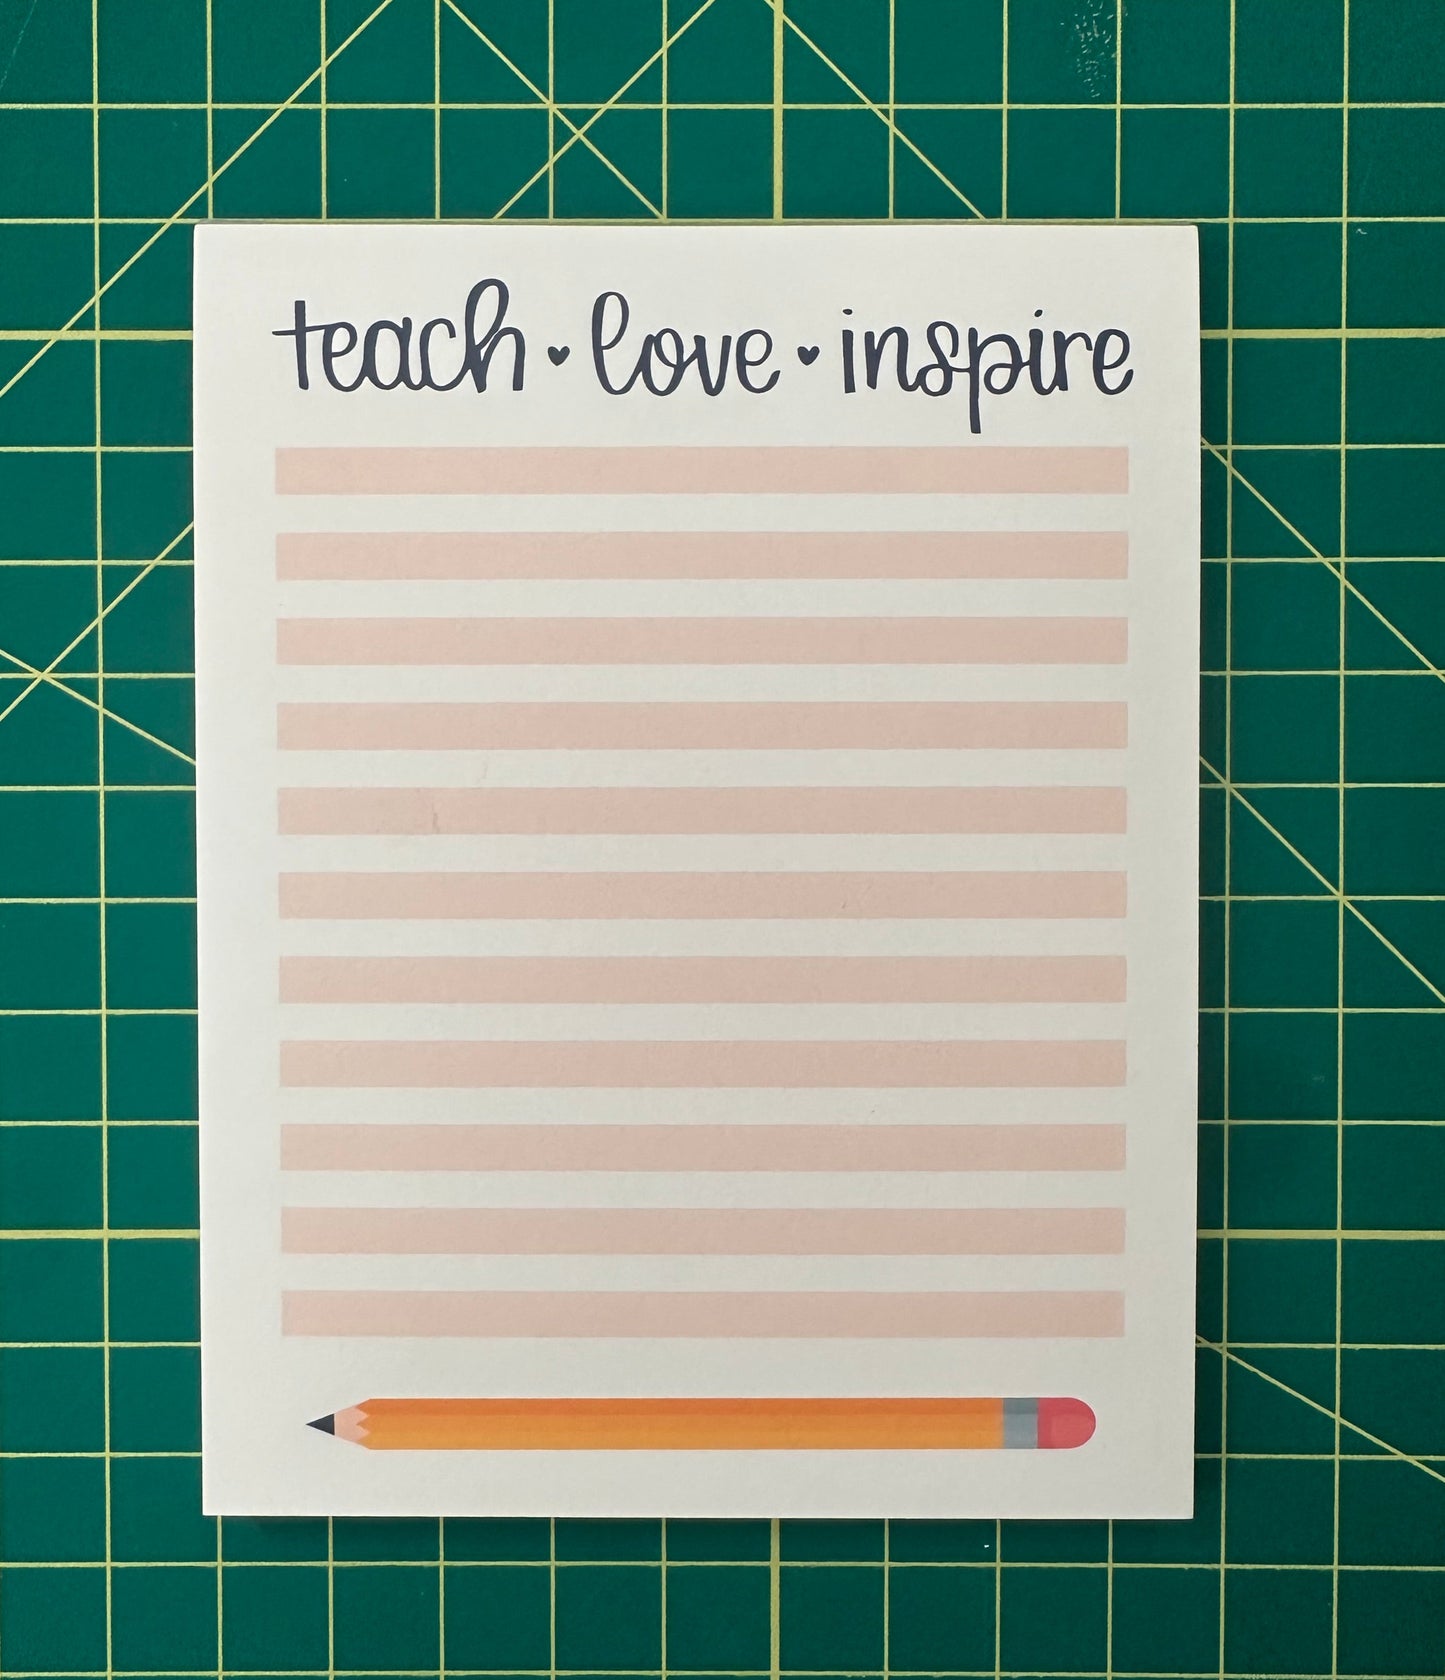 teach ♥ love ♥ inspire